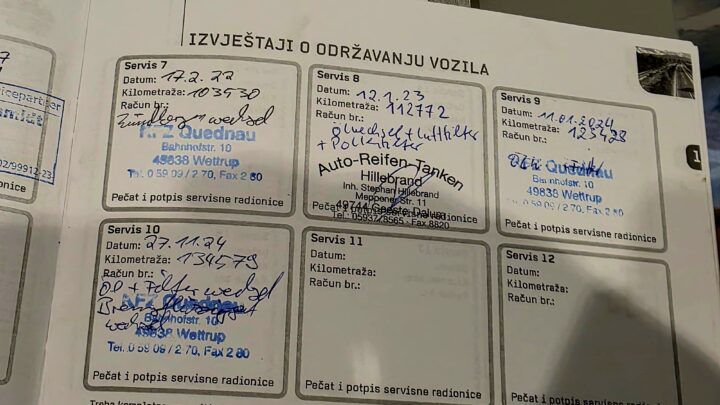 IZVJEŠTAJI O ODRŽAVANJU VOZILA
7
icepartner
midt
02/99912-23
radionice
Servis 7
Datum: 17.2.22
Kilometraža: 103530
Račun br.:
Zündkerzenwechsel
KFZ Quednau
Bahnhofstr. 10
49838 Wettrup
Tel. 0 59 09 / 2 70, Fax 2 80
Pečat i potpis servisne radionice
Servis 8
Datum: 12.1.23
Kilometraža: 112772
Račun br.:
Ölwechsel + Luftfilter
+ Pollenfilter
Auto-Reifen-Tanken
Hillebrand
Inh. Stephan Hillebrand
Meppener Str. 11
49744 Geeste-Dalum
Tel.: 05937/8565 - Fax 8820
Pečat i potpis servisne radionice
Servis 9
Datum: 11.01.2024
Kilometraža: 123428
Račun br.:
Quednau
Bahnhofstr. 10
49838 Wettrup
0 59 09 / 2 70, Fax 2 80
Pečat i potpis servisne radionice
1
Servis 10
Datum: 27.11.24
Kilometraža: 134579
Račun br.:
Öl + Filterwechsel
wechsel
KFZ Quednau
Bahnhofstr. 10
49838 Wettrup
Tel. 0 59 09 / 2 70, Fax 2 80
Pečat i potpis servisne radionice
Servis 11
Datum:
Kilometraža:
Račun br.:
Pečat i potpis servisne radionice
Servis 12
Datum:
Kilometraža:
Račun br.:
Pečat i potpis servisne radionice